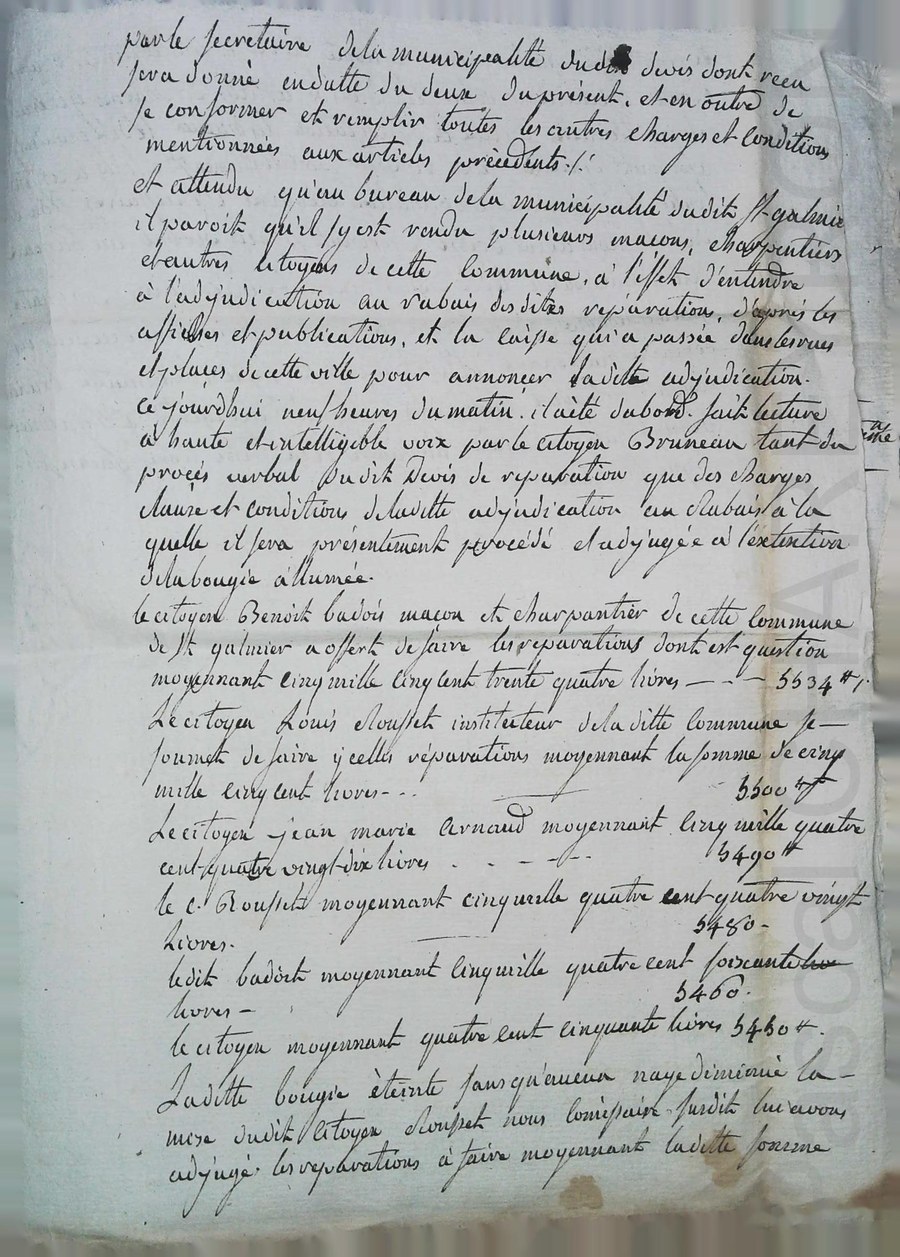 par le secretaire de la municipalitté dudit devis dont recu
sera donné en datte du deux du présent, et en outre de
se conformer et remplir toutes les autres charges et conditions
mentionnées aux articles précédents ./.
et attendu qu'au bureau de la municipalité dudit St galmier
il paroit qu'il s'y est rendu plusieurs macons, charpentiers
et autres citoyens de cette Commune, à l'effet d'entendre
à l'adjudication au rabais desdittes réparations, d'après les
affiches et publications, et la caisse qui a passée dans les rues
et places de cette ville pour annoncer laditte adjudication.
Ce jourdhui neuf heures du matin, il a été dabord fait lecture
à haute et intelligible voix par le citoyen Bruneau tant du
procès verbal dudit Devis de reparation que des charges
clause et conditions de laditte adjudication au Rabais à la
quelle il sera présentement procédé et adjugée à l'extinction
de la bougie allumée.
le citoyen Benoit badois macon et charpantier de cette Commune
de St galmier a offert de faire les reparations dont est question
moyennant cinq mille cinq cent trente quatre livres — — - 5534 ₶ /.
Le citoyen Louis Rousset instituteur de la ditte Commune se —
soumet de faire ycelles réparations moyennant la somme de cinq
mille cinq cent livres - - . — 5500 ₶
Le citoyen jean marie arnaud moyennant cinq mille quatre
cent quatre vingt dix livres . . - - - . 5490 ₶
le c. Rousset moyennant cinq mille quatre cent quatre vingt
Livres. — 5480 -
ledit badoit moyennant cinq mille quatre cent soixante liv
livres - 5460.
le citoyen moyennant quatre cent cinquante livres 5450 ₶.
Laditte bougie éteinte sans qu'aucun naye diminué la —
mise dudit Citoyen Rousset nous Comissaire susdit lui avons
adjugé les reparations à faire moyennant laditte somme